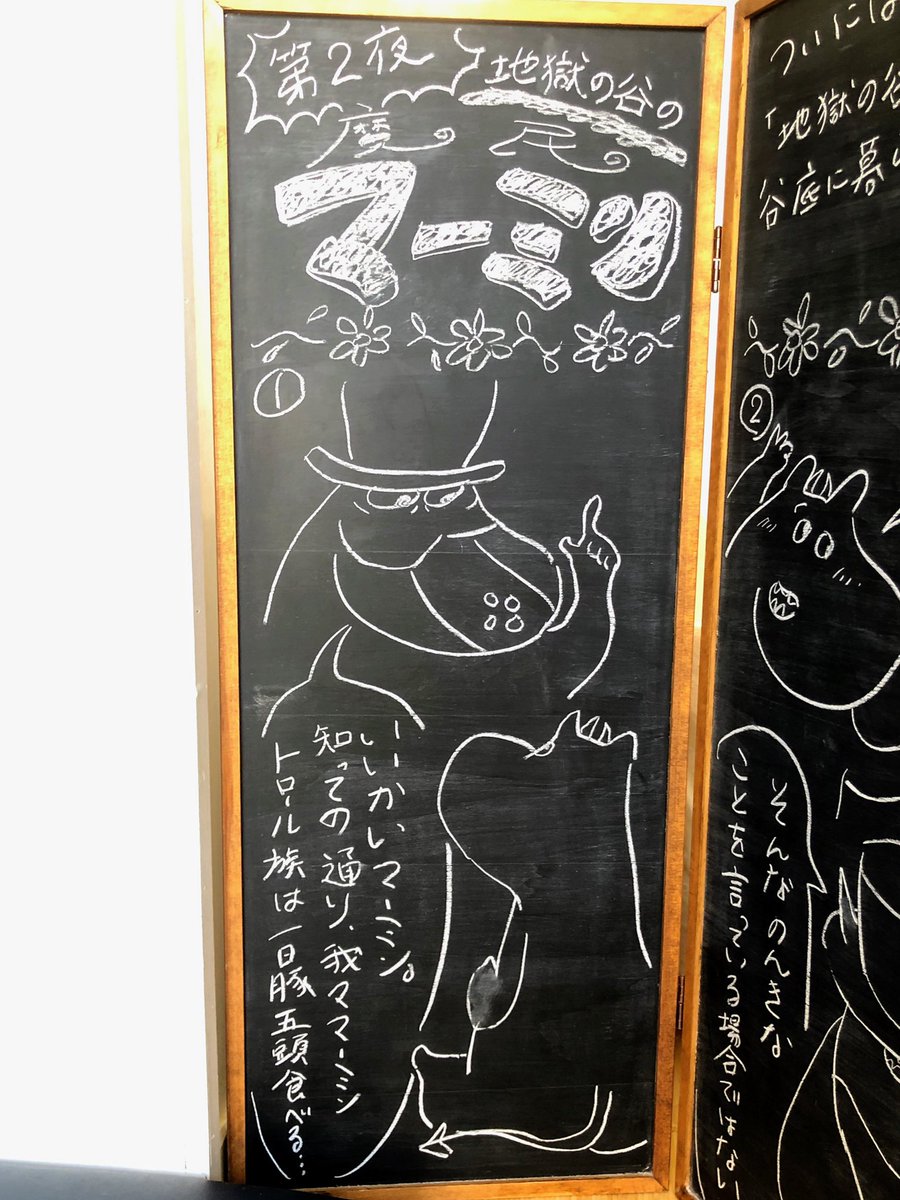 第2夜
地獄の谷の
マーミン
①
いいかいマーミン。
知っての通り、我々マーミン
トロール族は一日豚五頭食べる…
ついには
「地獄の谷
谷底に暮
②
そんなのんきな
ことを言っている場合ではない